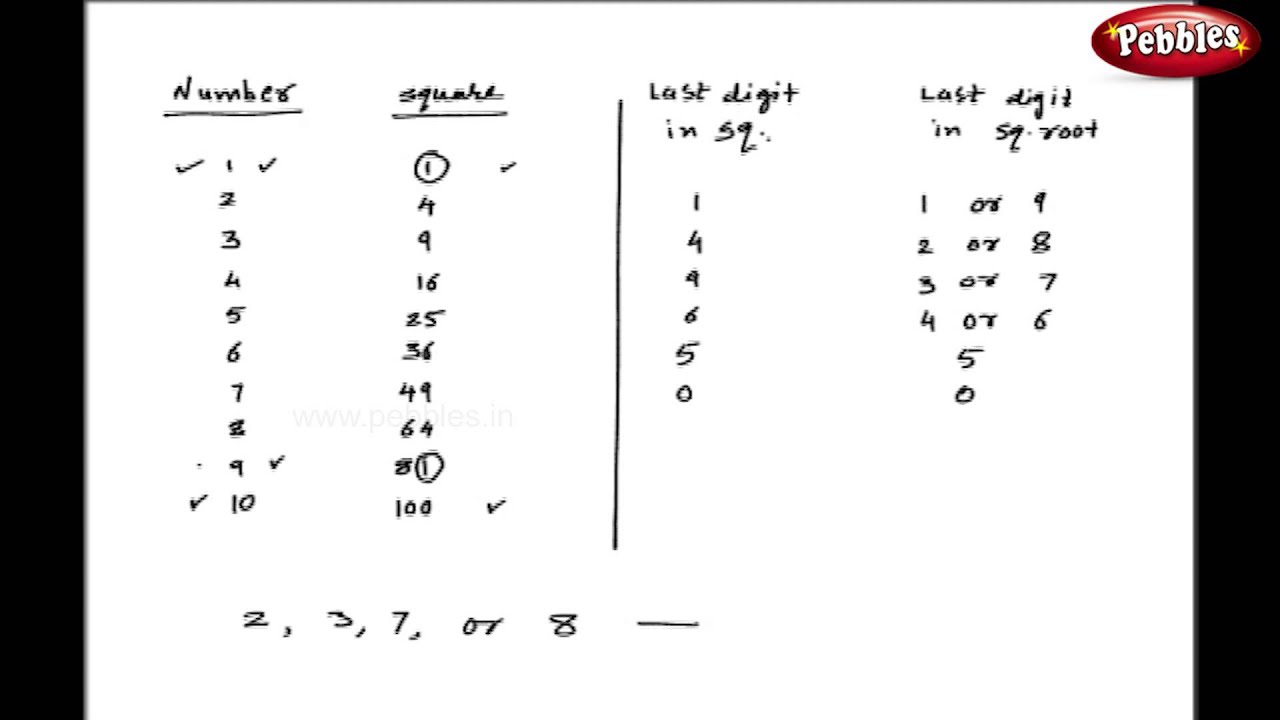 Pebbles
Number square Last digit in sq. Last digit in sq. root
1 1
2 4 1 1 or 9
3 9 4 2 or 8
4 16 9 3 or 7
5 25 6 4 or 6
6 36 5 5
7 49 0 0
www.pebbles.in
8 64
9 81
10 100
2, 3, 7, or 8 —